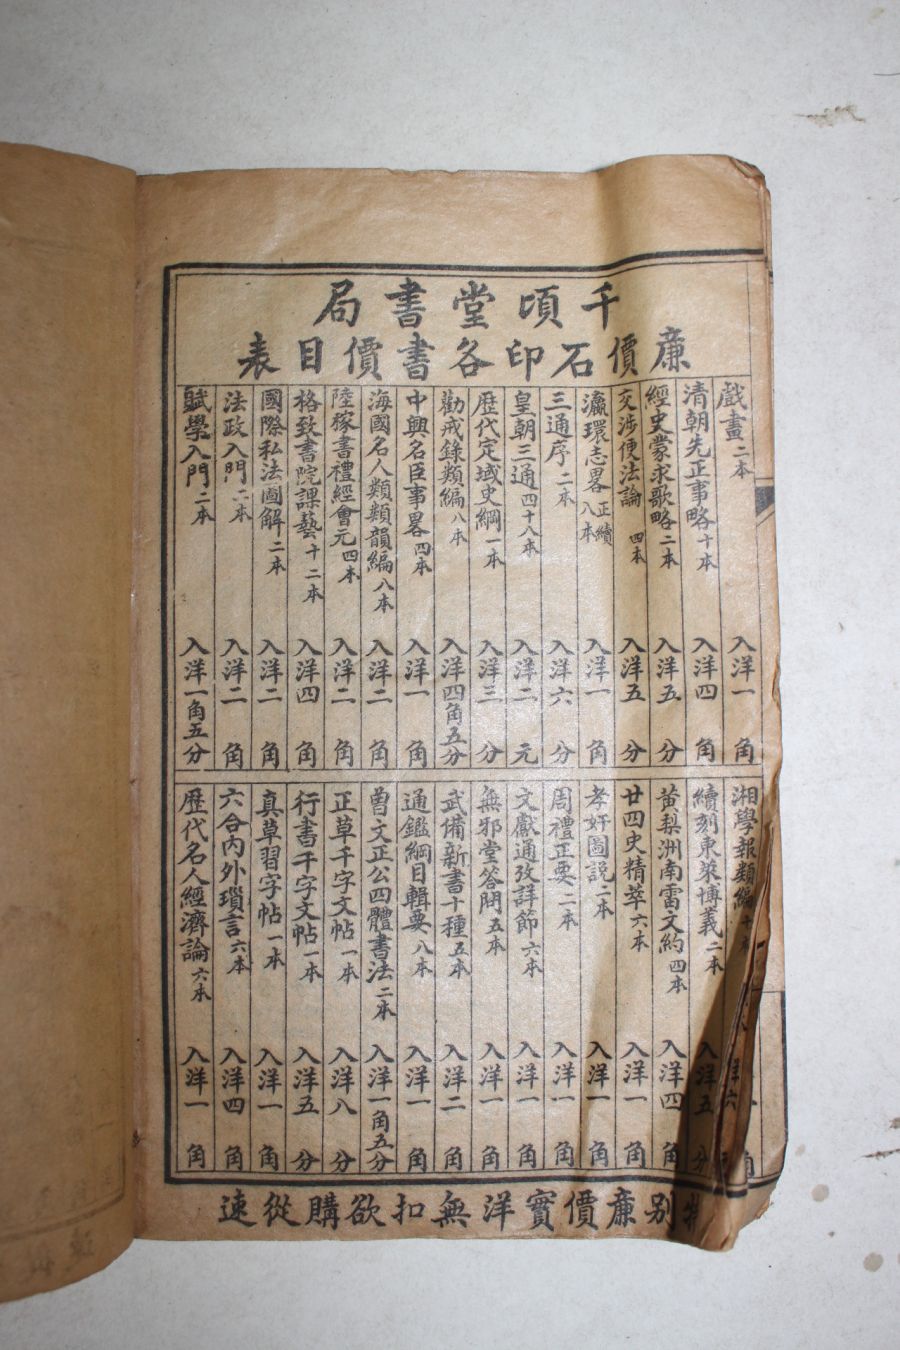 千頃堂書局
廉價石印各書價目表
戲畫二本 入洋一角
清朝先正事略十本 入洋四角
經史蒙求歌略二本 入洋五分
交涉便法論四本 入洋五分
瀛環志畧正續八本 入洋一角
三通序二本 入洋六分
皇朝三通四十八本 入洋二元
歷代定域史綱一本 入洋三分
勸戒錄類編八本 入洋四角五分
中興名臣事畧四本 入洋一角
海國名人類類韻編八本 入洋二角
陸稼書禮經會元四本 入洋二角
格致書院課藝十二本 入洋四角
國際私法圖解二本 入洋二角
法政入門二本 入洋二角
賦學入門二本 入洋一角五分
湘學報類編十 洋六角
續刻東萊博義二本 入洋五分
黄梨洲南雷文約四本 入洋四角
廿四史精萃六本 入洋一角
孝奸圖説二本 入洋一角
周禮正要二本 入洋一角
文獻通攷詳節六本 入洋一角
無邪堂答問五本 入洋一角
武備新書十種五本 入洋二角
通鑑綱目輯要八本 入洋一角
曾文正公四體書法二本 入洋一角五分
正草千字文帖一本 入洋八分
行書千字文帖一本 入洋五分
真草習字帖一本 入洋一角
六合內外瑣言六本 入洋四角
歷代名人經濟論六本 入洋一角
特別廉價實洋無扣欲購從速